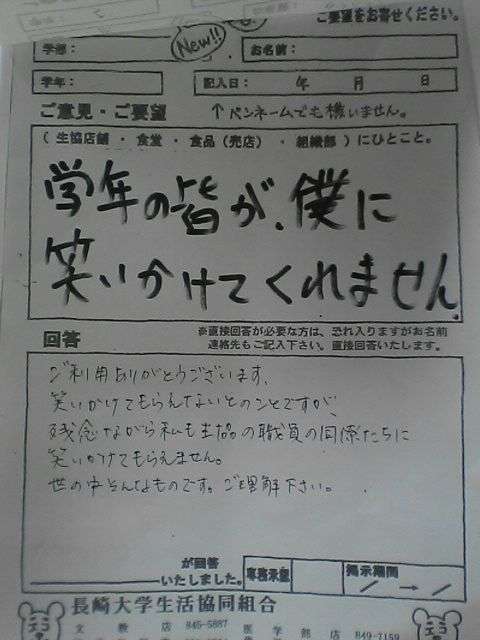 ご要望をお寄せください。
New!!
学部：
お名前：
学年：
記入日： 年 月 日
ご意見・ご要望 ↑ペンネームでも構いません。
（生協店舗・食堂・食品（売店）・組織部）にひとこと。
学年の皆が、僕に
笑いかけてくれません。
回答
※直接回答が必要な方は、恐れ入りますがお名前
連絡先もご記入下さい。直接回答いたします。
ご利用ありがとうございます。
笑いかけてもらえないとのことですが、
残念ながら私も生協の職員の同僚たちに
笑いかけてもらえません。
世の中そんなものです。ご理解下さい。
が回答
いたしました。
専務承認
掲示期間
／ → ／
長崎大学生活協同組合
文教店 845-5887
医学部店 849-7159